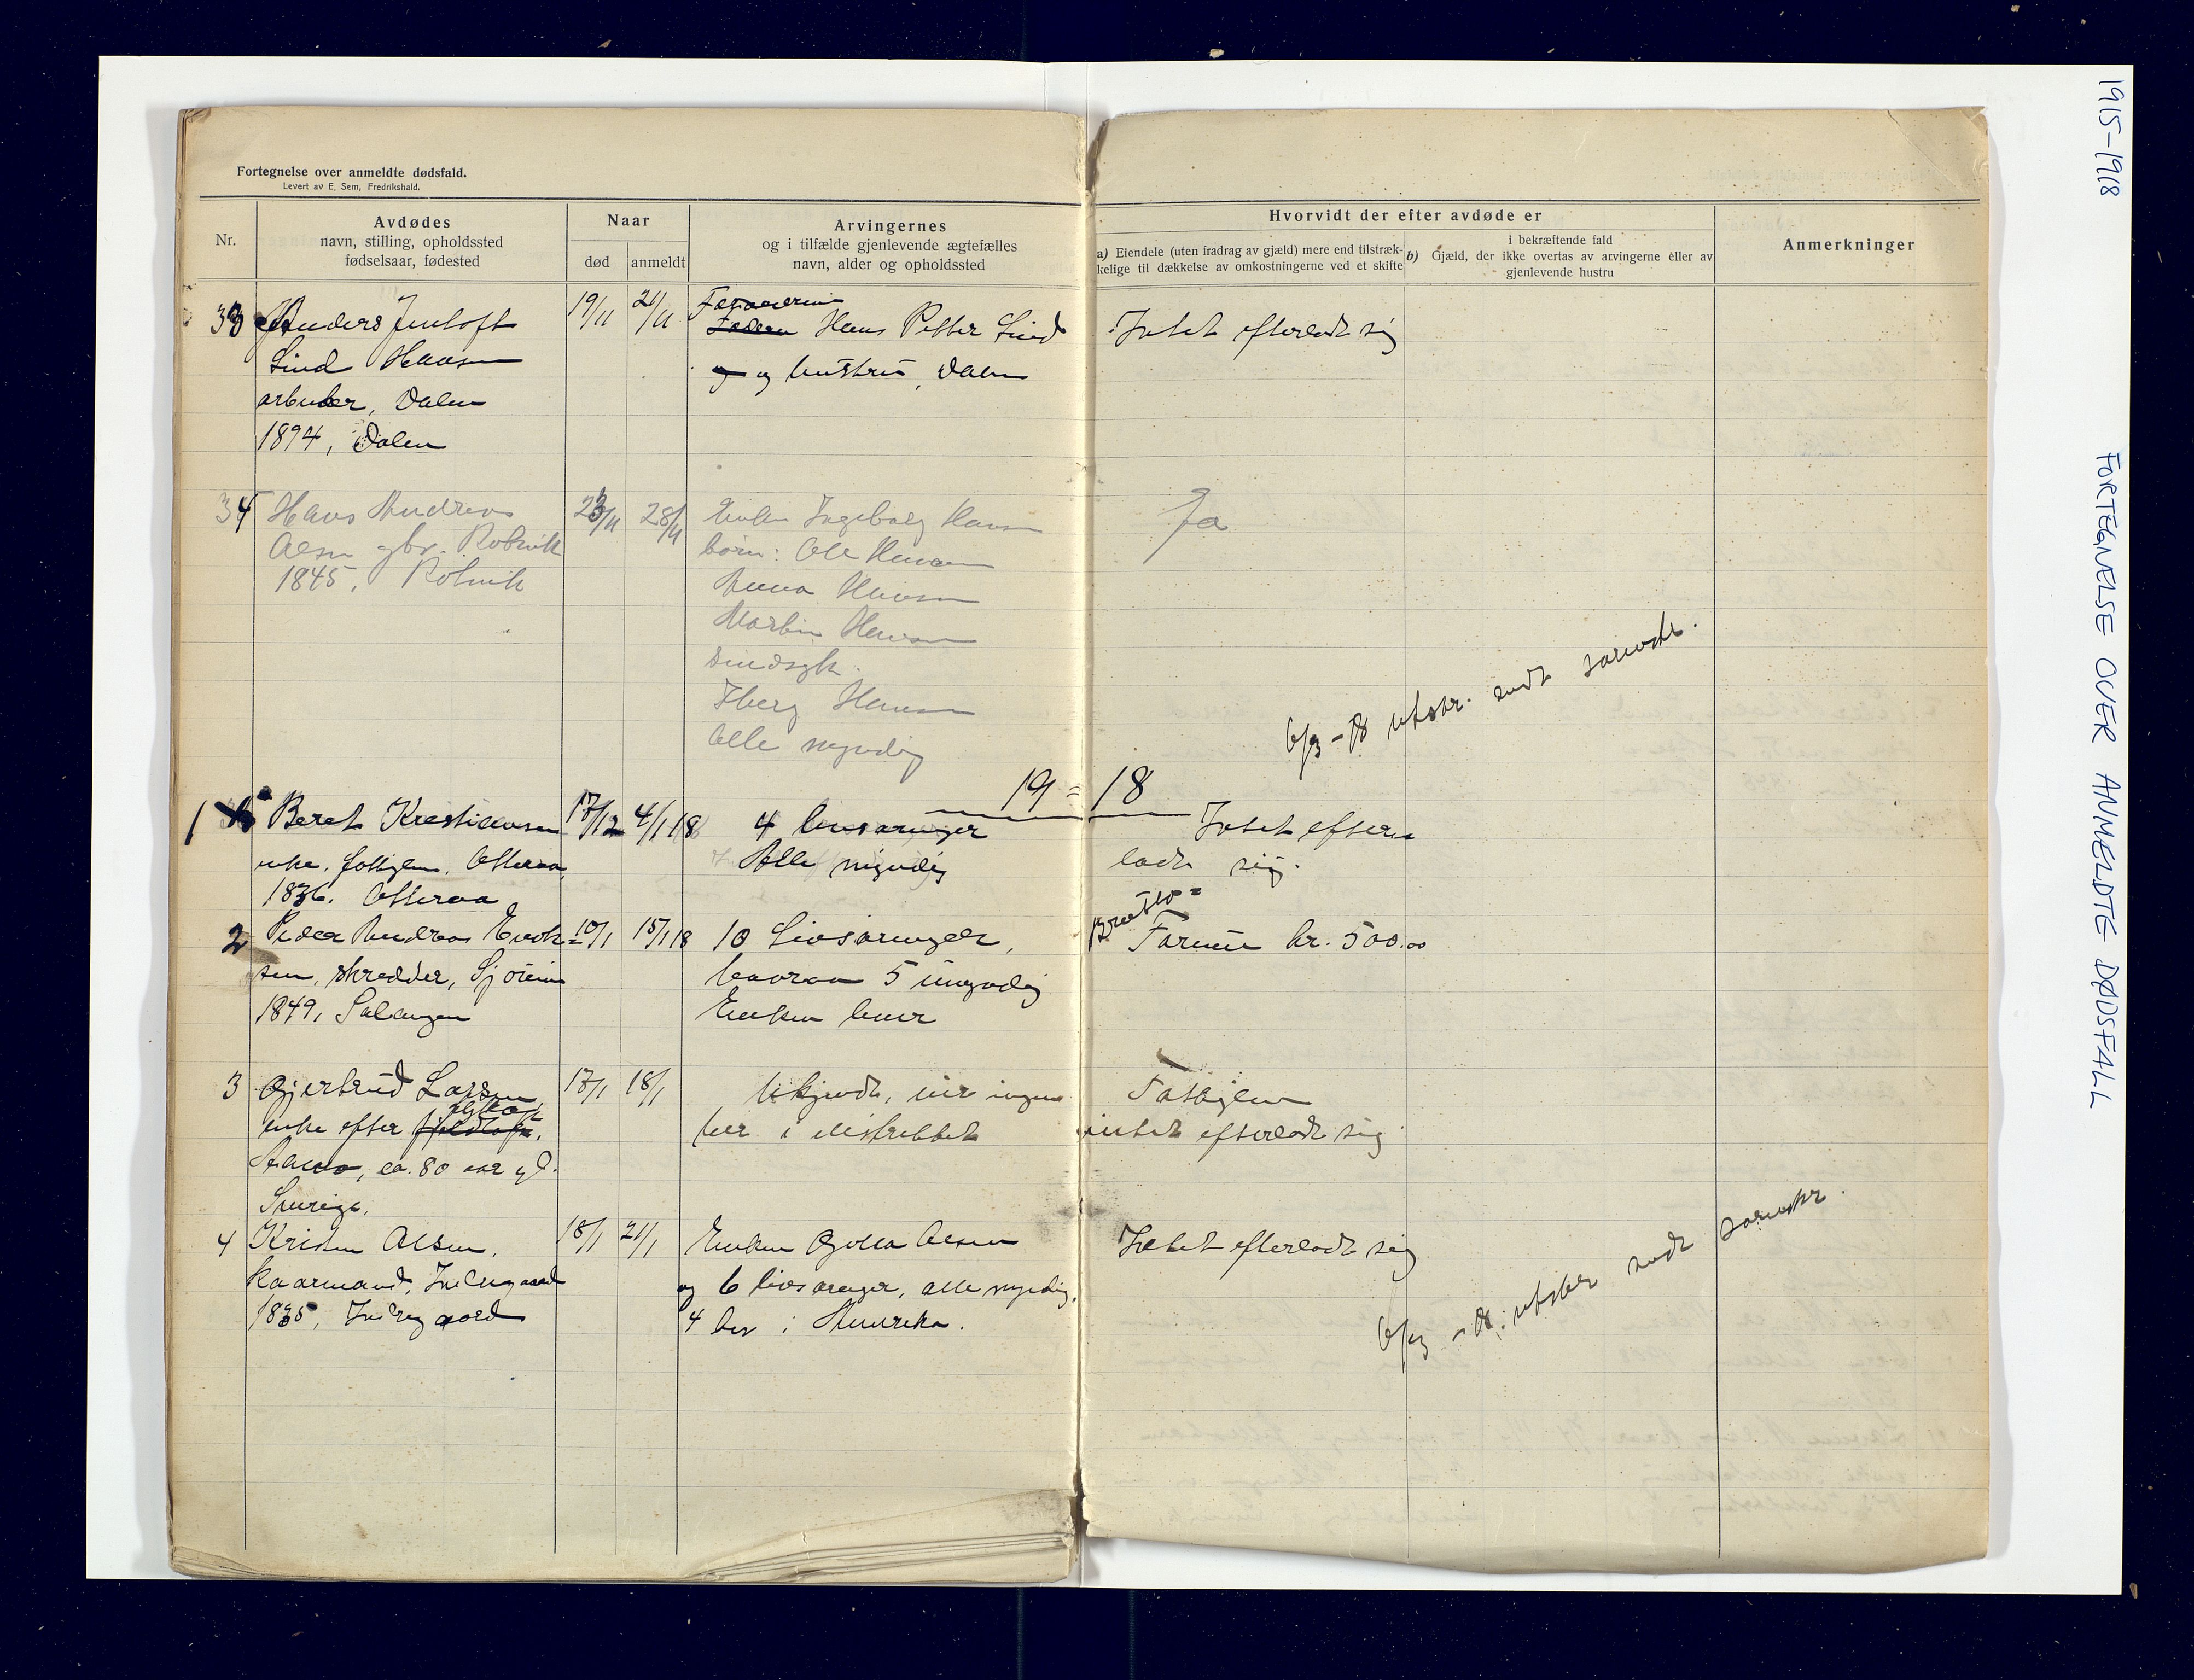 1915-1918 FORTEGNELSE OVER ANMELDTE DØDSFALL
Fortegnelse over anmeldte dødsfald.
Levert av E. Sem, Fredrikshald.
Nr.
Avdødes
navn, stilling, opholdssted
fødselsaar, fødested
Naar
død
anmeldt
Arvingernes
og i tilfælde gjenlevende ægtefælles
navn, alder og opholdssted
Hvorvidt der efter avdøde er
a) Eiendele (uten fradrag av gjæld) mere end tilstræk-
kelige til dækkelse av omkostningerne ved et skifte
i bekræftende fald
b) Gjæld, der ikke overtas av arvingerne eller av
gjenlevende hustru
Anmerkninger
33 Anders Jentoft 19/11 21/11 Hans Petter Lind Intet efterlodt sig
Lind Hansen og hustru, Dalen
arbeider, Dalen
1894, Dalen
34 Hans Andreas 23/11 28/11 Enken Ingeborg Hansen Ja
Olsen gbr. Rotvik børn: Ole Hansen
1845. Rotvik Anna Hansen
Martin Hansen
sindsyk.
Hansen
Alle myndig
6/3 - 18 utskr. sendt sorenskr.
19 = 18
1 Beret Kristiansen 17/12 4/1 18 4 livsarvinger Intet efter=
enke, fattiglem, Alle myndig lodt sig.
1836.
2 Peder Andreas 10/1 15/1 18 10 Livsarvinger, Brutto=
sen, skredder, Sjøvein hvorav 5 umyndig Formue kr. 500.00
1849, Salangen Enken lever
3 Gjertrud Larsen 17/1 18/1 Ukjendt, ingen Fattiglem
enke efter her i distriktet intet efterlodt sig
ca. 80 aar gl.
Sverige.
4 Olsen, 18/1 21/1 Enken Olsen Intet efterlodt sig
kaarmand, Indregaard og 6 livsarvinger, alle myndig,
1835, Indregaard 4 bor i Amerika.
6/3 - 18. utskr sendt sorenskr.